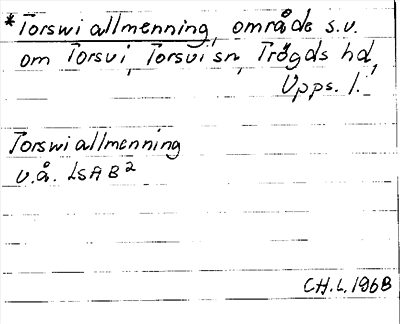 *Torswi allmenning, område s.v.
om Torsvi, Torsvi sn, Trögds hd,
Upps. l.¹
Torswi allmenning
u.å. LSAB²
CH.L. 1968